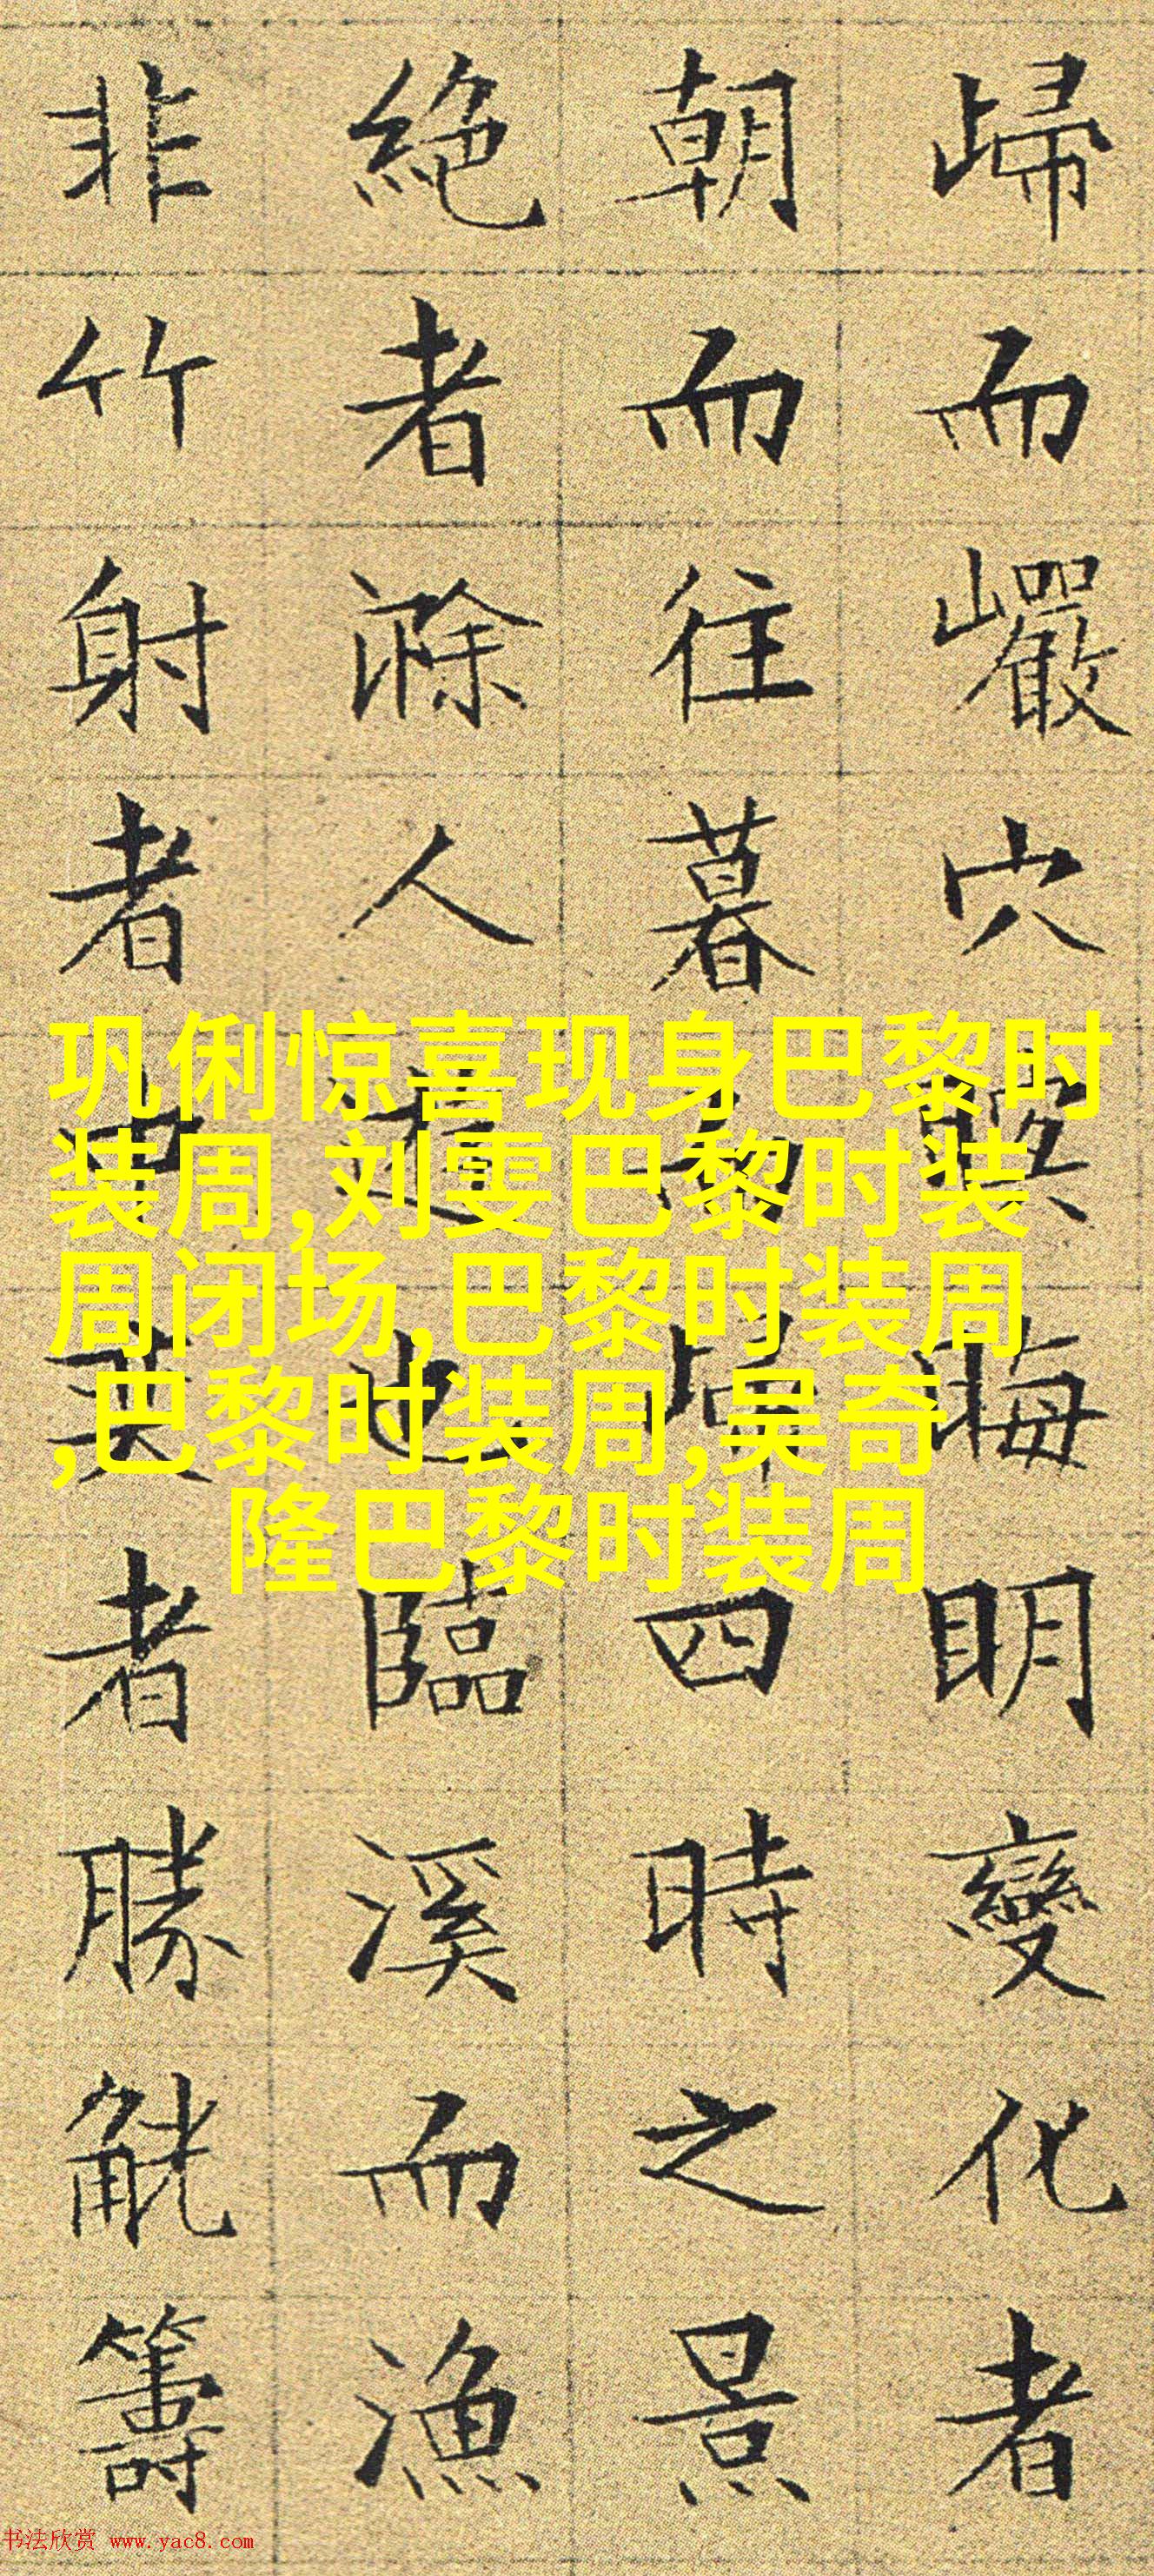 歸而巖穴暝晦明變化者
朝而往暮而歸四時之景
絶者滁人也臨溪而漁
非竹射者中者勝觥籌
巩俐惊喜现身巴黎时
装周,刘雯巴黎时装
周闭场,巴黎时装周
,巴黎时装周,吴奇
隆巴黎时装周
书法欣赏 www.yac8.com